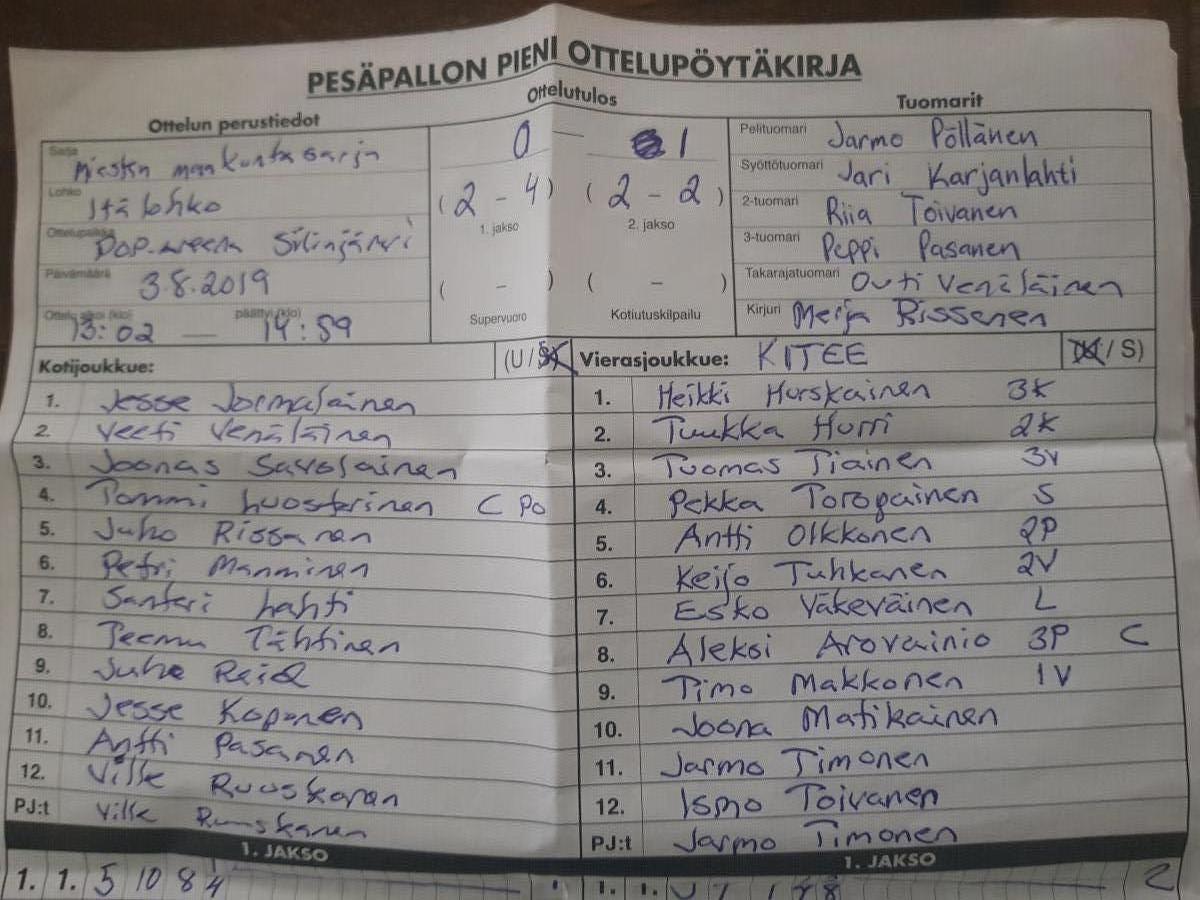 PESÄPALLON PIENI OTTELUPÖYTÄKIRJA
Ottelun perustiedot
Ottelutulos
Tuomarit
Sarja Miesten maakuntasarja
Lohko Itälohko
Ottelupaikka Siilinjärvi
Päivämäärä 3.8.2019
Ottelu alkoi (klo) 13:02 — päättyi (klo) 14:59
0 — 1
(2 - 4) (2 - 2)
1. jakso 2. jakso
( - ) ( - )
Supervuoro Kotiutuskilpailu
Pelituomari Jarmo Pöllänen
Syöttötuomari Jari Karjanlahti
2-tuomari Riia Toivanen
3-tuomari Peppi Pasanen
Takarajatuomari Outi Venäläinen
Kirjuri Merja Rissanen
Kotijoukkue: (U/S)
1. Jesse Jormalainen
2. Veeti Venäläinen
3. Joonas Savolainen
4. Tommi Luostarinen C Po
5. Juho Rissanen
6. Petri Manninen
7. Santeri Lahti
8. Teemu Tähtinen
9. Juho
10. Jesse Koponen
11. Antti Pasanen
12. Ville Ruuskanen
PJ:t Ville Ruuskanen
Vierasjoukkue: KITEE (U/S)
1. Heikki Hurskainen 3K
2. Tuukka Hurri 2K
3. Tuomas Tiainen 3V
4. Pekka Toropainen S
5. Antti Olkkonen 2P
6. Keijo Tuhkanen 2V
7. Esko Väkeväinen L
8. Aleksi Arovainio 3P C
9. Timo Makkonen 1V
10. Joona Matikainen
11. Jarmo Timonen
12. Ismo Toivanen
PJ:t Jarmo Timonen
1. JAKSO
1. JAKSO
1. 1. 5 10 8 4
1. 1. 2